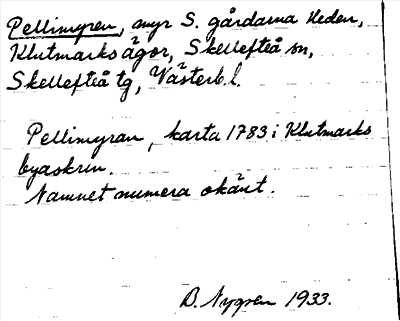 Pellimyren, myr S. gårdarna Heden,
Klutmarks ägor, Skellefteå sn,
Skellefteå tg, Västerb. l.
Pellimyran, karta 1783 i Klutmarks
byaskrin.
Namnet numera okänt.
B. Nygren 1933.